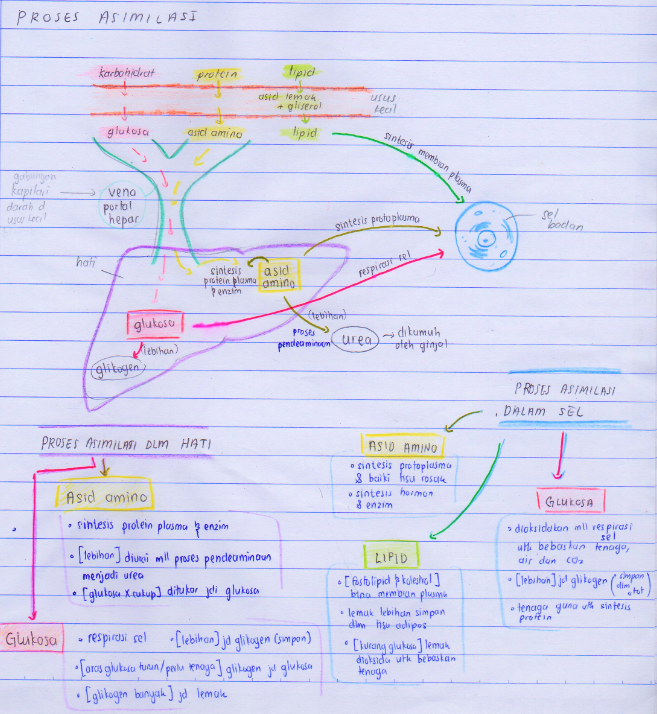 PROSES ASIMILASI
karbohidrat protein lipid
asid lemak
+ gliserol
usus
kecil
glukosa asid amino lipid
sintesis membran plasma
gabungan
kapilari
darah d
usus kecil
vena
portal
hepar
sintesis protoplasma
sel
badan
hati
sintesis
protein plasma
& enzim
asid
amino
respirasi sel
glukosa
(lebihan)
glikogen
(lebihan)
proses
pendeaminaan
urea → dikumuh
oleh ginjal
PROSES ASIMILASI
DALAM SEL
PROSES ASIMILASI DLM HATI
ASID AMINO
• sintesis protoplasma
& baiki tisu rosak
• sintesis hormon
& enzim
Asid amino
• sintesis protein plasma & enzim
• [lebihan] diurai mll proses pendeaminaan
menjadi urea
• [glukosa x cukup] ditukar jdi glukosa
GLUKOSA
• dioksidakan mll respirasi
sel
utk bebaskan tenaga,
air dan CO₂
• [lebihan] jd glikogen (simpan
dlm
otot)
• tenaga guna utk sintesis
protein
LIPID
• [fosfolipid & kolesterol]
bina membran plasma
• lemak lebihan simpan
dlm tisu adipos
• [kurang glukosa] lemak
dioksida utk bebaskan
tenaga
Glukosa
• respirasi sel • [lebihan] jd glikogen (simpan)
• [aras glukosa turun/perlu tenaga] glikogen jd glukosa
• [glikogen banyak] jd lemak